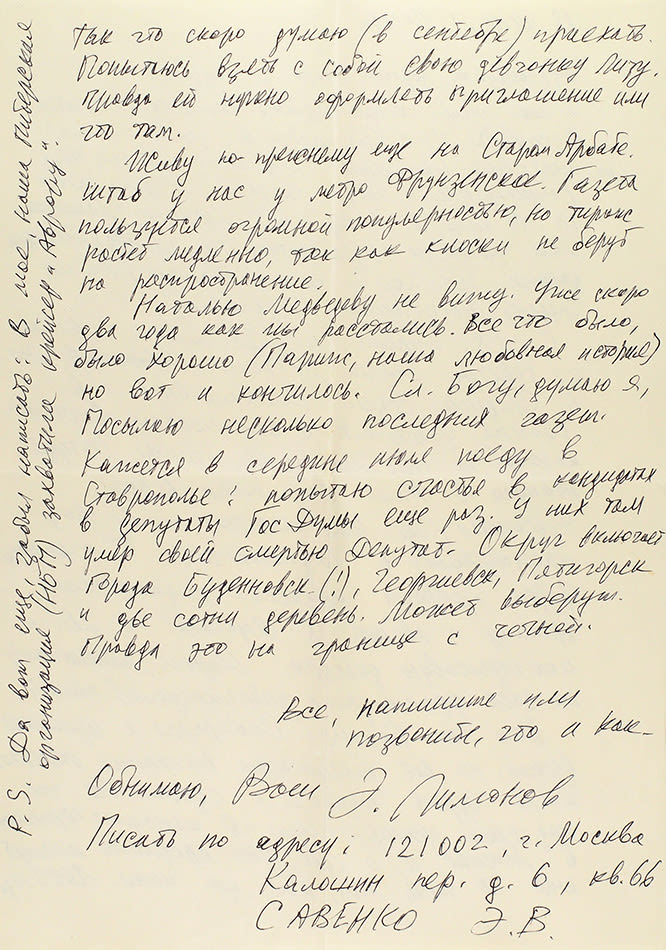 Так что скоро думаю (в сентябре) приехать.
Попытаюсь взять с собой свою девчонку Лизу.
Правда ей нужно оформлять приглашение или
что там.
Живу по-прежнему еще на Старом Арбате.
Штаб у нас у метро Фрунзенское. Газета
пользуется огромной популярностью, но тираж
растет медленно, так как киоски не берут
на распространение.
Наталью Медведеву не вижу. Уже скоро
два года как мы расстались. Все что было,
было хорошо (Париж, наша любовная история)
но вот и кончилось. Сл. Богу, думаю я,
Посылаю несколько последних газет.
Кажется в середине июля поеду в
Ставрополье: попытаю счастье в кандидатах
в депутаты ГосДумы еще раз. У них там
умер своей смертью Депутат. Округ включает
города Буденновск (!), Георгиевск, Пятигорск
и две сотни деревень. Может выберут.
Правда это на границе с Чечней.
Все, напишите или
позвоните, что и как–
Обнимаю, Ваш Э. Лимонов
Писать по адресу: 121002, г. Москва
Калошин пер. д. 6, кв. 66
САВЕНКО Э.В.
P.S. Да вот еще, забыл написать: В мае, наша Питерская
организация (НБП) захватила крейсер "Аврору".